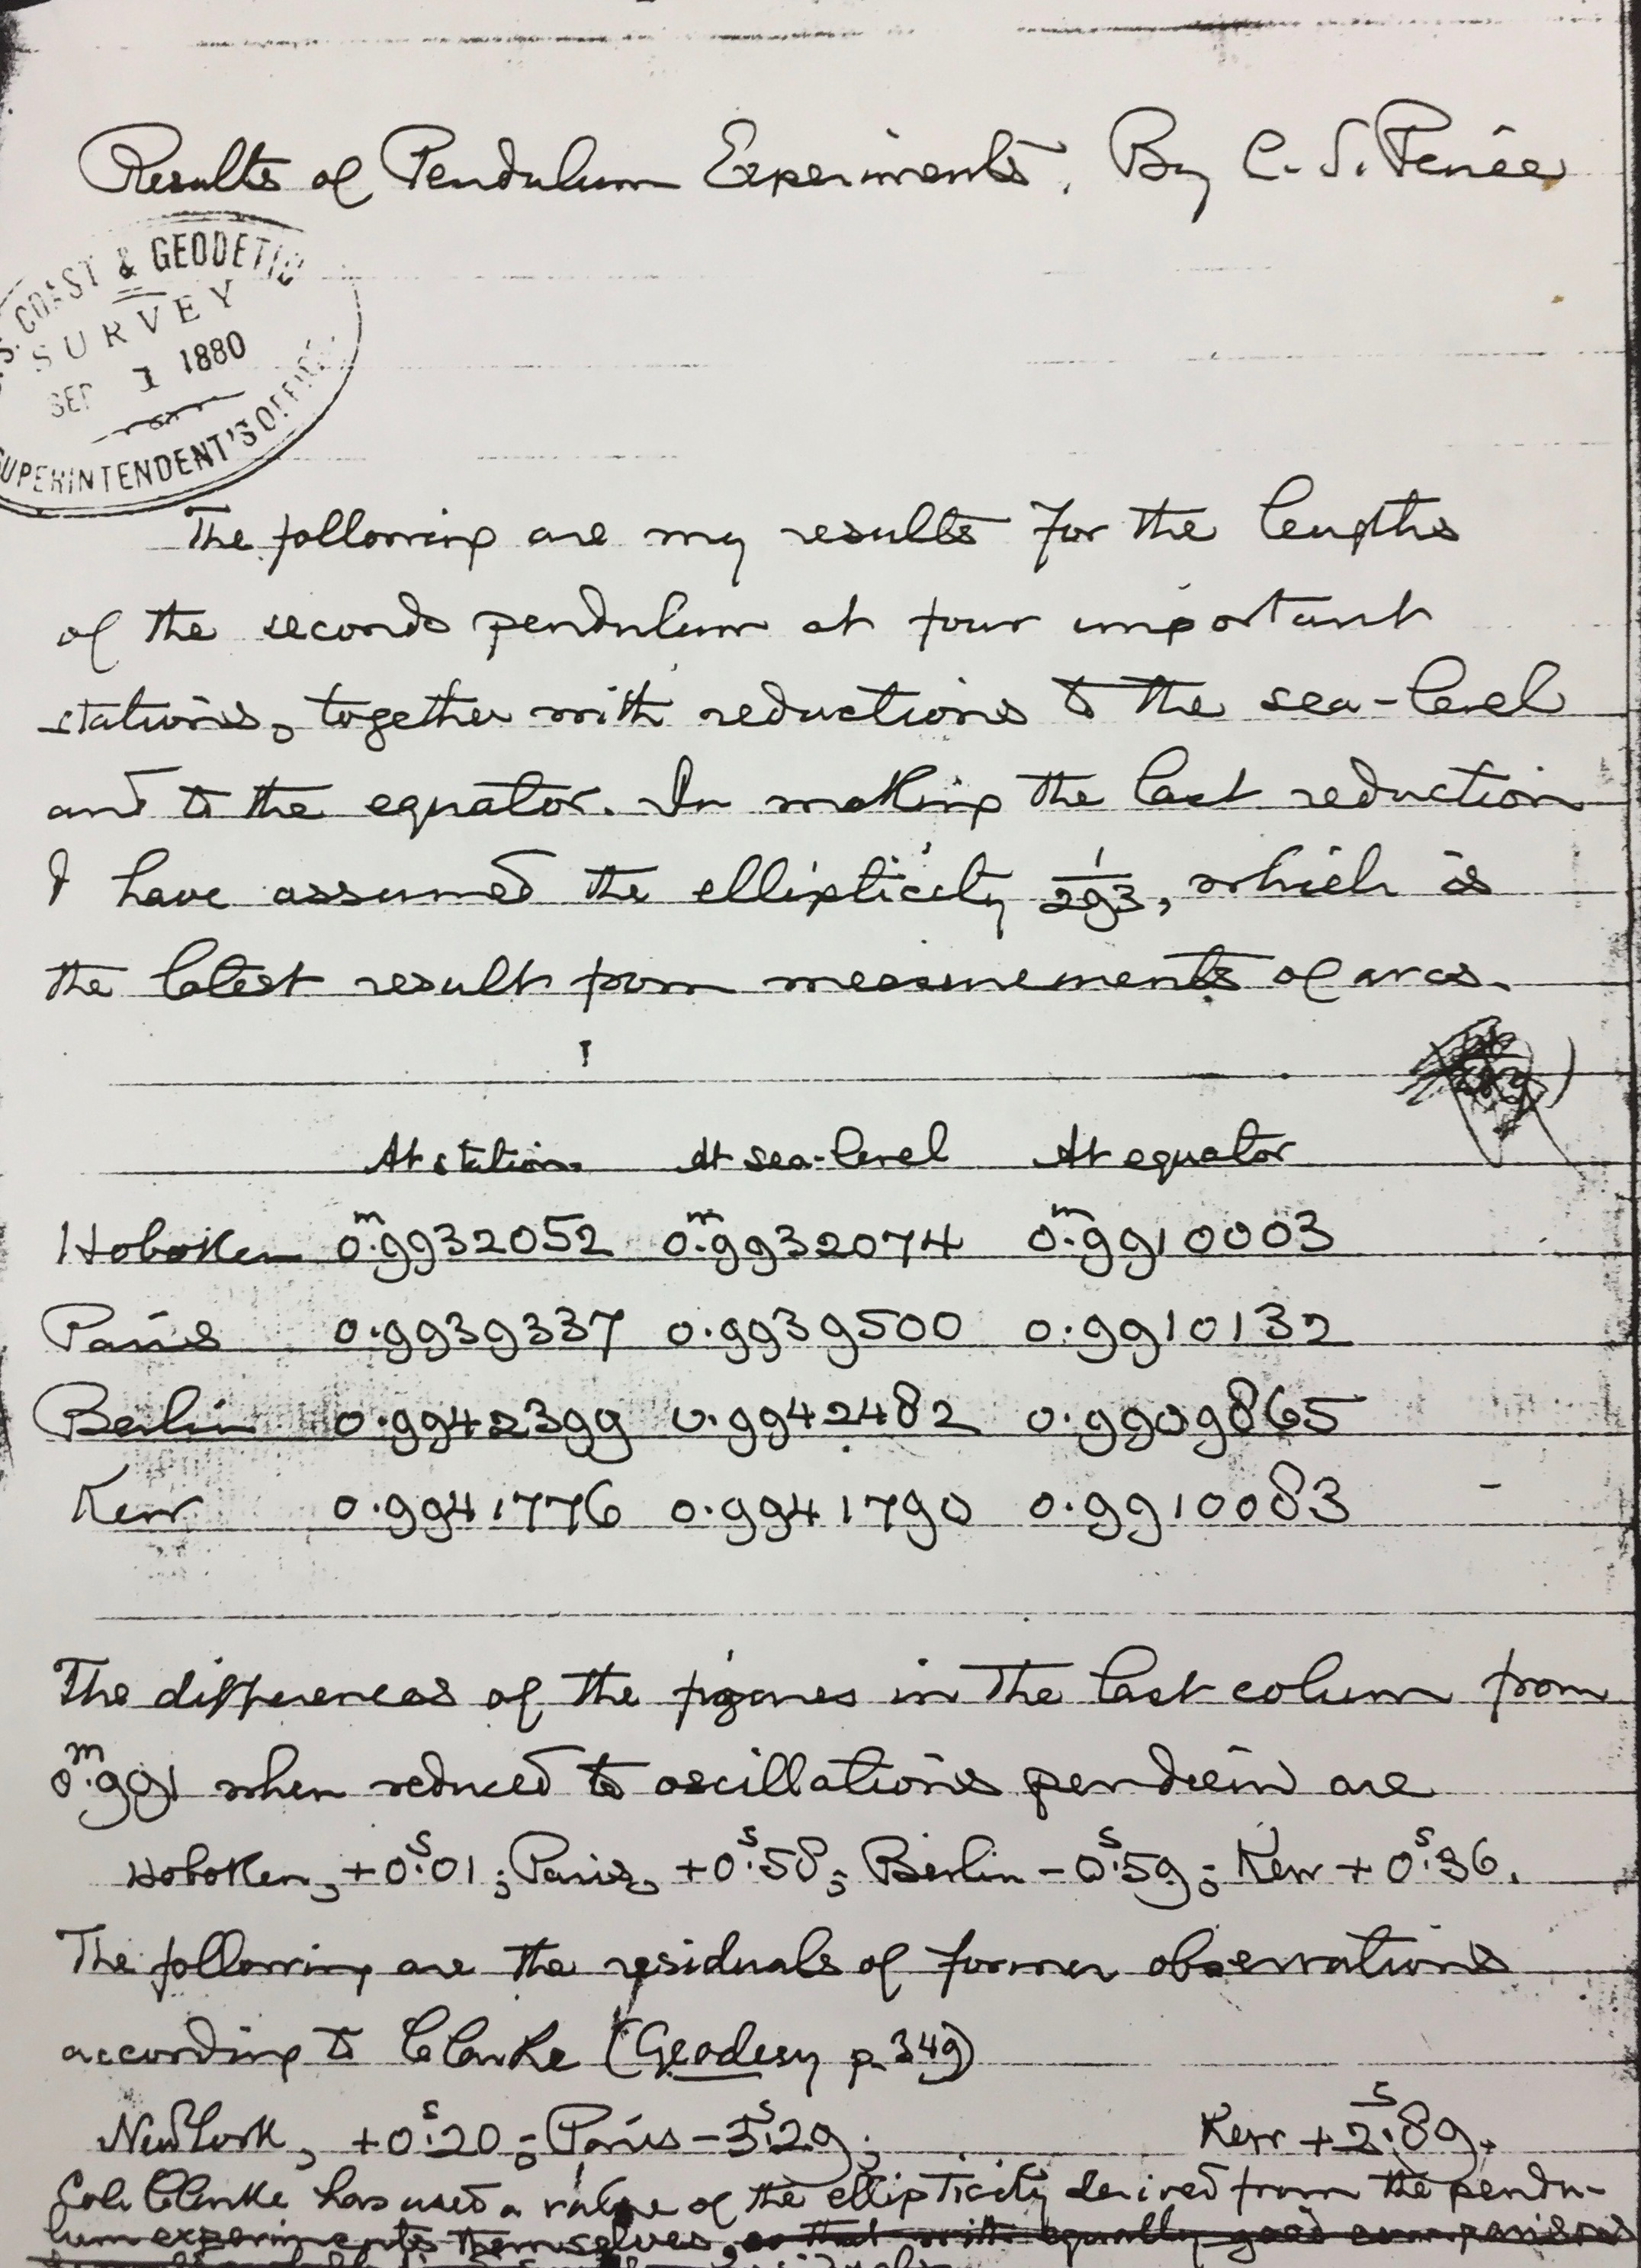 Results of Pendulum Experiments. By C. S. Peirce
U.S. COAST & GEODETIC
SURVEY
SEP 1 1880
SUPERINTENDENT'S OFFICE.
The following are my results for the lengths
of the seconds pendulum at four important
stations, together with reductions to the sea-level
and to the equator. In making the last reduction
I have assumed the ellipticity 1/293, which is
the latest result from measurements of arcs.
At station. At sea-level At equator
Hoboken 0.ᵐ9932052 0.ᵐ9932074 0.ᵐ9910003
Paris 0.9939337 0.9939500 0.9910132
Berlin 0.9942399 0.9942482 0.9909865
Kew 0.9941776 0.9941790 0.9910083
The differences of the figures in the last column from
0.ᵐ991 when reduced to oscillations per diem are
Hoboken, +0.ˢ01; Paris, +0.ˢ58; Berlin -0.ˢ59; Kew +0.ˢ36.
The following are the residuals of former observations
according to Clarke (Geodesy p. 349)
New York, +0.ˢ20; Paris -3.ˢ29; Kew +2.ˢ89.
Col. Clarke has used a value of the ellipticity derived from the pendu-
lum experiments themselves, so that with equally good comparisons